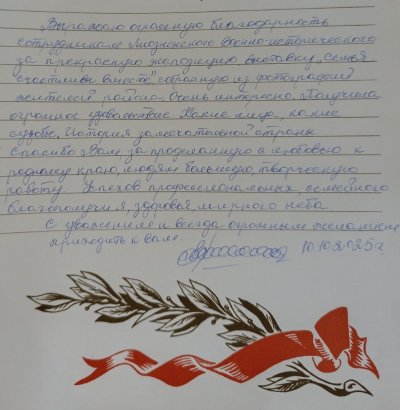 Выражаю огромную благодарность
сотрудникам Лиозненского военно-исторического
за прекрасную экспозицию, выставку "Семья
счастливы вместе", собранную из фотографий
жителей района. Очень интересно. Получила
огромное удовольствие. Какие лица, какие
судьбы. История замечательной страны.
Спасибо Вам за проделанную с любовью к
родному краю, людям большую, творческую
работу. Успехов профессиональных, семейного
благополучия, здоровья, мирного неба.
С уважением и всегда огромным желанием
приходить к вам.
10.10.2025 г.